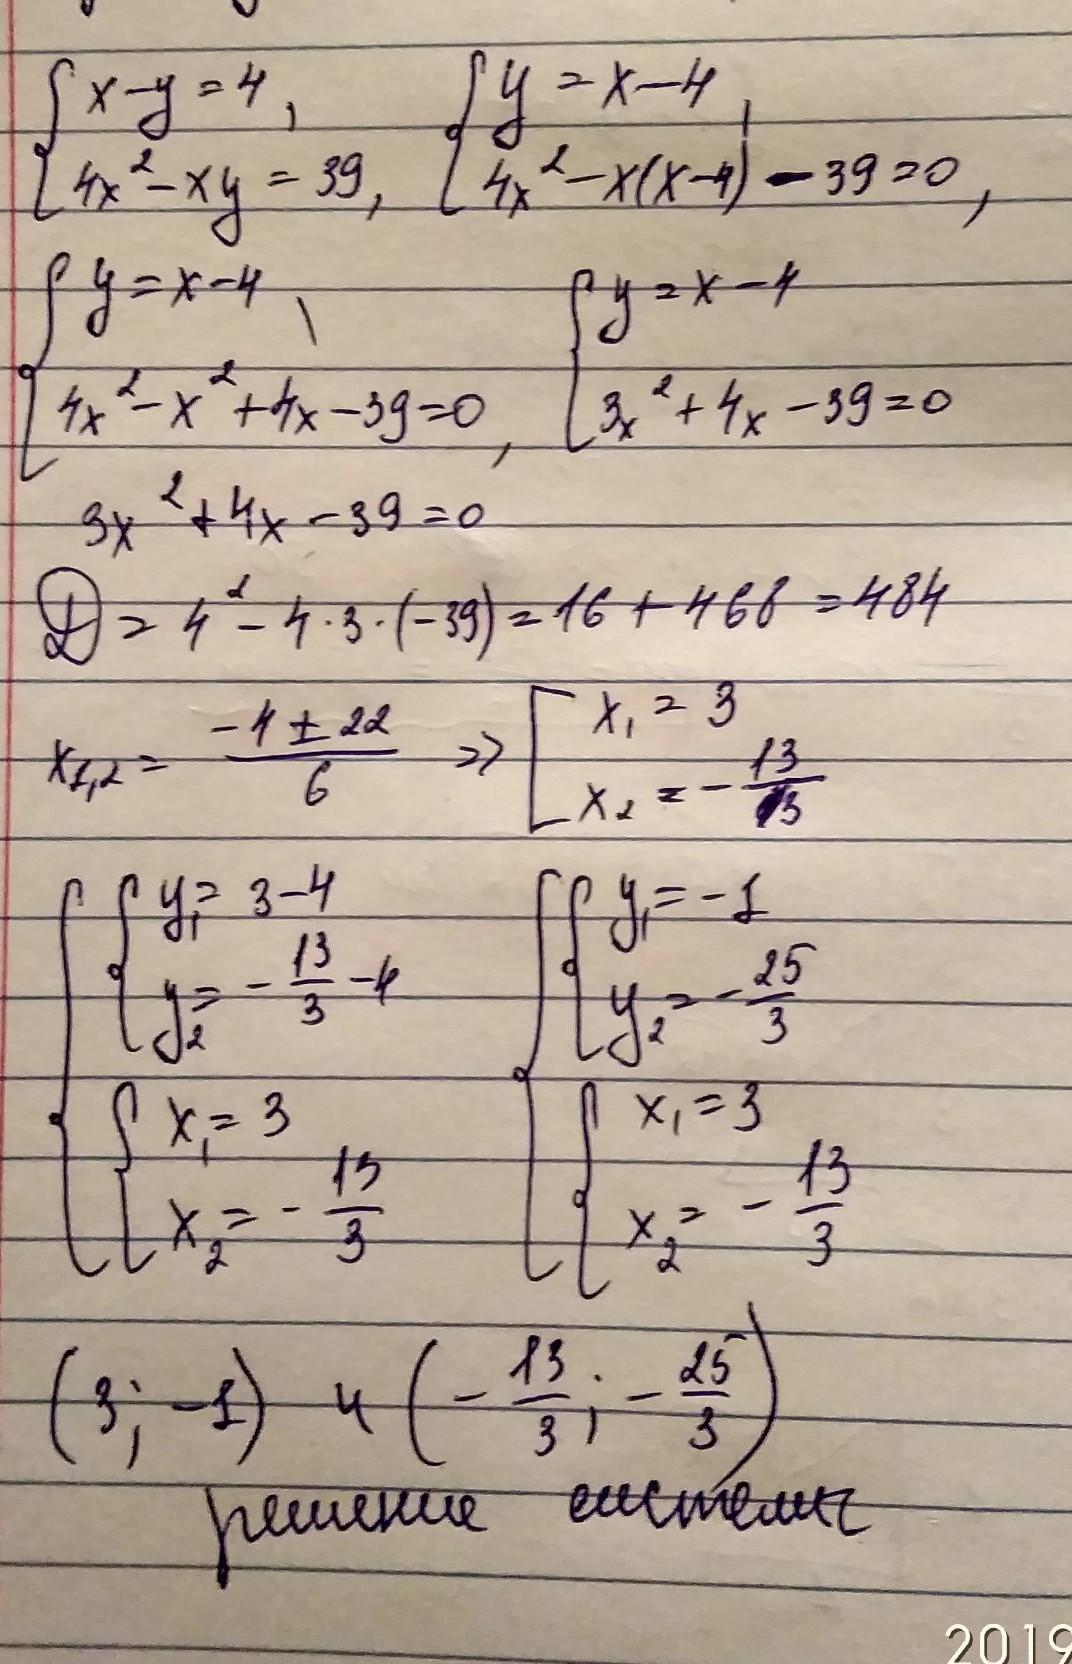 { x-y=4, { y=x-4,
4x²-xy=39, 4x²-x(x-4)-39=0,
{ y=x-4, { y=x-4
4x²-x²+4x-39=0, 3x²+4x-39=0
3x²+4x-39=0
D=4²-4·3·(-39)=16+468=484
x₁,₂= (-4±22)/6 => [ x₁=3
x₂=-13/3
{ { y₁=3-4 { { y₁=-1
y₂=-13/3-4 y₂=-25/3
{ x₁=3 { x₁=3
x₂=-13/3 x₂=-13/3
(3;-1) и (-13/3;-25/3)
решение системы
2019